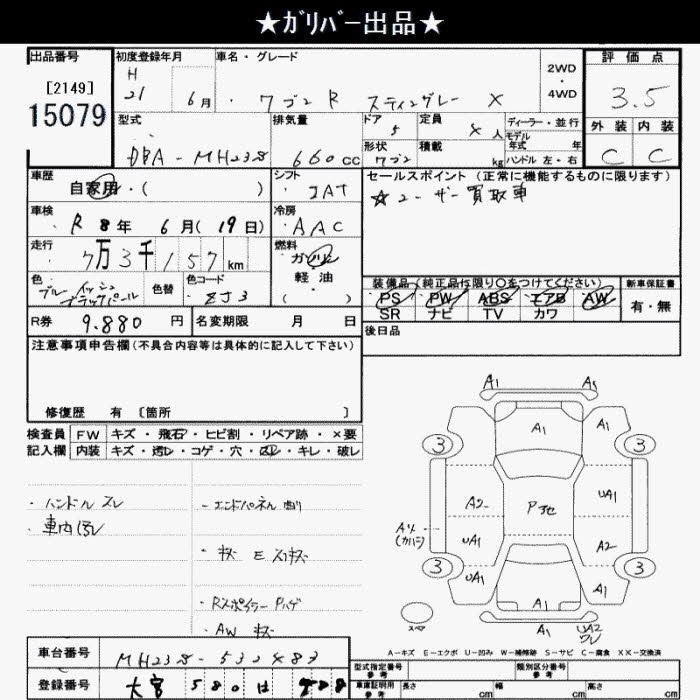 ★ｶﾞﾘﾊﾞｰ出品★
出品番号
[2149]
15079
初度登録年月
H
21 6月
車名・グレード
ワゴンR スティングレー X
2WD
・
4WD
評価点
3.5
外装 内装
C C
型式
DBA-MH23S
排気量
660cc
ドア
5
定員
4人
形状
ワゴン
積載
kg
ディーラー・並行
モデル
年式 年
ハンドル 左・右
車歴
自家用・( )
シフト
IAT
セールスポイント (正常に機能するものに限ります)
☆ユーザー買取車
車検
R 8年 6月(19日)
冷房
AAC
走行
7万3千157km
燃料
ガソリン
軽油
( )
色
ブルーイッシュ
ブラックパール
色替
色コード
ZJ3
装備品(純正品に限り〇をつけてください)
新車保証書
PS PW ABS エアB AW
SR ナビ TV カワ
有・無
R券
9.880円
名変期限 月 日
後日品
注意事項申告欄(不具合内容等は具体的に記入して下さい)
修復歴 有 〔箇所 〕
検査員
記入欄
FW キズ・飛石・ヒビ割・リペア跡・×要
内装 キズ・汚レ・コゲ・穴・スレ・キレ・破レ
・ハンドル スレ
・車内汚レ
・エンドパネル 曲り
・キズ Eスリキズ
・Rスポイラー Pハゲ
・AW キズ
A1 A1
A1 A1
3 3
A2 P他 UA1
A4
(カバー)
UA1 A2
3 3
UA1 A1
A1
スペア
A1 UA2
ワレ
A－キズ E－エクボ U－凹み W－補修跡 S－サビ C－腐食 XX－交換済
車台番号
MH23S-532483
登録番号
大宮 580 は
型式指定番号
参考
類別区分番号
参考
車庫証明用
参考
長さ cm
幅 cm
高さ cm